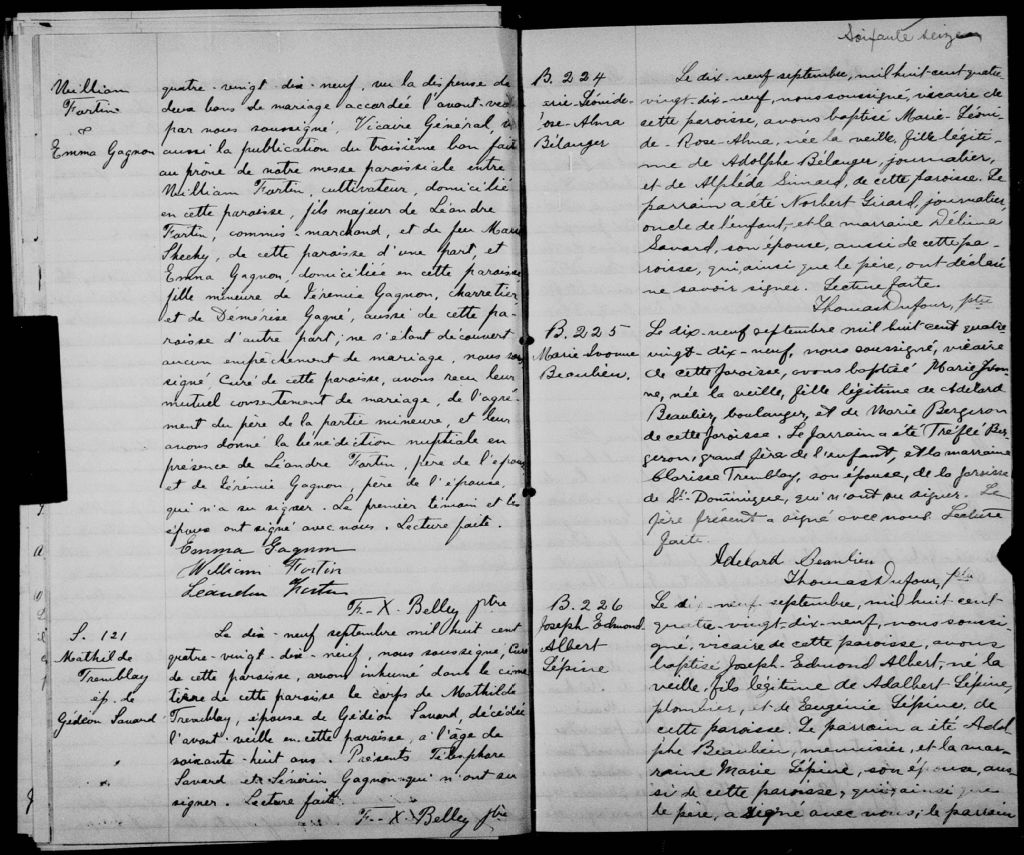 William
Fortin
&
Emma Gagnon
quatre-vingt-dix-neuf, vu la dispense de
deux bans de mariage accordée l'avant-veille
par nous soussigné, Vicaire Général, vu
aussi la publication du troisième ban faite
au prône de notre messe paroissiale entre
William Fortin, cultivateur, domicilié
en cette paroisse, fils majeur de Léandre
Fortin, commis-marchand, et de feu Marie
Sheehy, de cette paroisse d'une part, et
Emma Gagnon, domiciliée en cette paroisse,
fille mineure de Jérémie Gagnon, charretier
et de Démérise Gagné, aussi de cette pa-
roisse d'autre part; ne s'étant découvert
aucun empêchement de mariage, nous sous-
signé, Curé de cette paroisse, avons reçu leur
mutuel consentement de mariage, de l'agré-
ment du père de la partie mineure, et leur
avons donné la bénédiction nuptiale en
présence de Léandre Fortin, père de l'époux
et de Jérémie Gagnon, père de l'épouse,
qui n'a su signer. Le premier témoin et les
époux ont signé avec nous. Lecture faite.
Emma Gagnon
William Fortin
Leandre Fortin
F-X. Belley ptre
S. 121
Mathilde
Tremblay
ép. de
Gédéon Savard
Le dix-neuf septembre mil huit cent
quatre-vingt-dix-neuf, nous soussigné, Curé
de cette paroisse, avons inhumé dans le cime-
tière de cette paroisse le corps de Mathilde
Tremblay, épouse de Gédéon Savard, décédée
l'avant-veille en cette paroisse, à l'âge de
soixante-huit ans. Présents Télesphore
Savard et Séverin Gagnon qui n'ont su
signer. Lecture faite.
F-X. Belley ptre
Soixante seize
B. 224
erie-Léonide
ose-Alma
Bélanger
Le dix-neuf septembre, mil huit cent quatre
vingt-dix-neuf, nous soussigné, vicaire de
cette paroisse, avons baptisé Marie-Léoni-
de-Rose-Alma, née la veille, fille légiti-
me de Adolphe Bélanger, journalier,
et de Alphéda Simard, de cette paroisse. Le
parrain a été Norbert Girard, journalier,
oncle de l'enfant, et la marraine Délina
Savard, son épouse, aussi de cette pa-
roisse, qui, ainsi que le père, ont déclaré
ne savoir signer. Lecture faite.
Thomas Dufour, ptre
B. 225
Marie Ivonne
Beaulieu.
Le dix-neuf septembre mil huit cent quatre
vingt-dix-neuf, nous soussigné, vicaire
de cette paroisse, avons baptisé Marie Ivon-
ne, née la veille, fille légitime de Adélard
Beaulieu, boulanger, et de Marie Bergeron
de cette paroisse. Le parrain a été Tréflé Ber-
geron, grand père de l'enfant, et la marraine
Clarisse Tremblay, son épouse, de la paroisse
de St-Dominique, qui n'ont su signer. Le
père présent a signé avec nous. Lecture
faite.
Adelard Beaulieu
Thomas Dufour, ptre
B. 226
Joseph-Edmond
Albert
Lépine
Le dix-neuf septembre, mil huit cent
quatre-vingt-dix-neuf, nous soussi-
gné, vicaire de cette paroisse, avons
baptisé Joseph-Edmond Albert, né la
veille, fils légitime de Adalbert Lépine,
plombier, et de Eugénie Lépine, de
cette paroisse. Le parrain a été Adol-
phe Beaulieu, menuisier, et la mar-
raine Marie Lépine, son épouse, aus-
si de cette paroisse, qui, ainsi que
le père, a signé avec nous; le parrain